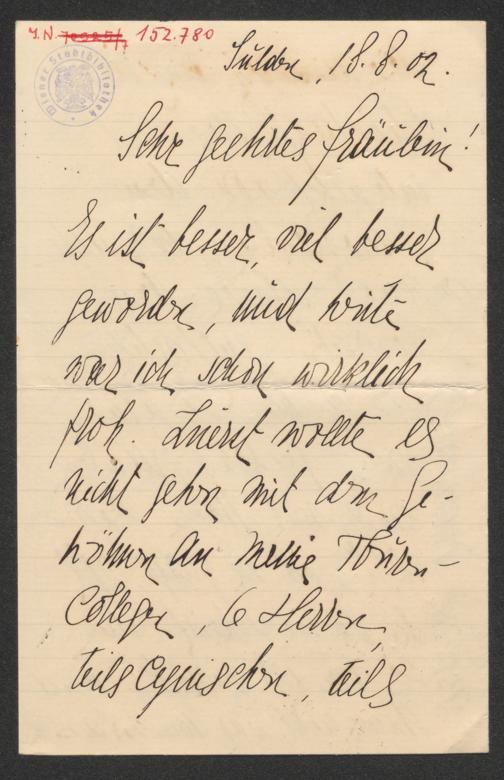 J.N. 70925/7 152.780
Wiener Stadtbibliothek
Sulden, 18.8.02.
Sehr geehrtes Fräulein!
Es ist besser, viel besser
geworden, und heute
war ich schon wirklich
froh. Zuerst wollte es
nicht gehen mit dem Ge-
wöhnen an meine Touren-
Collegen, 6 Herren,
teils cynischen, teils